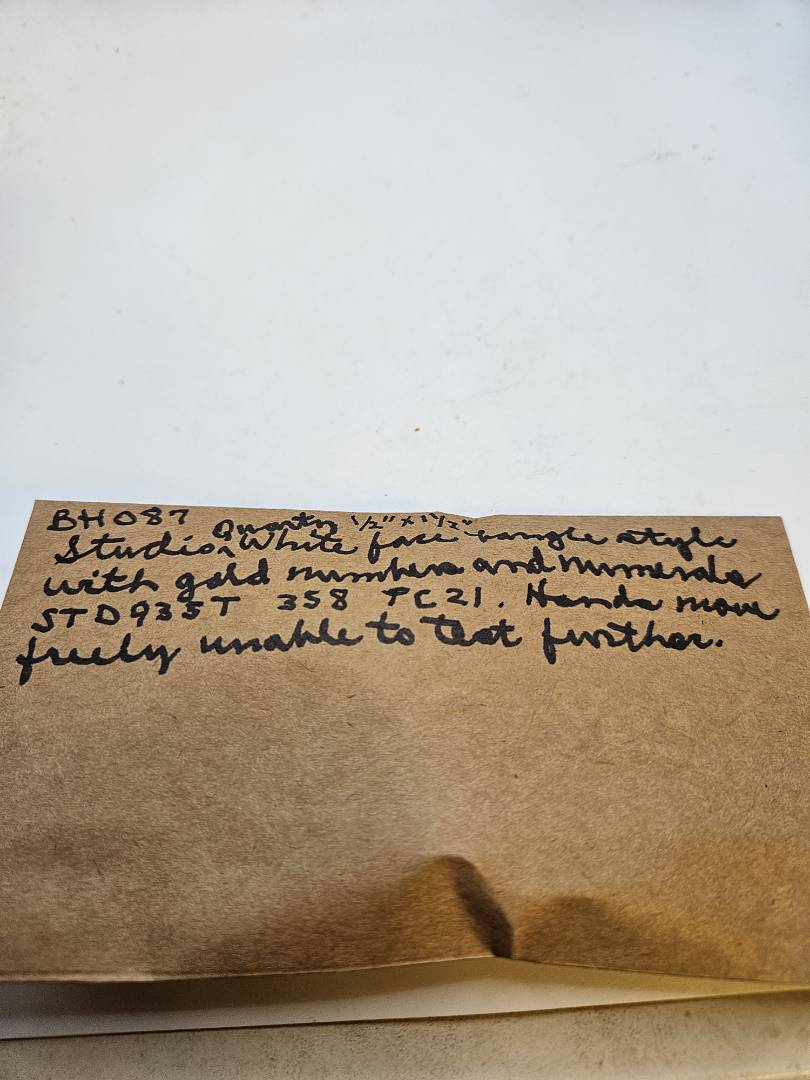 BH087 Quartz 1/2" x 1 1/2"
Studio ^ White face bangle style
with gold numbers and numerals
STD935T 358 PC21. Hands move
freely unable to test further.